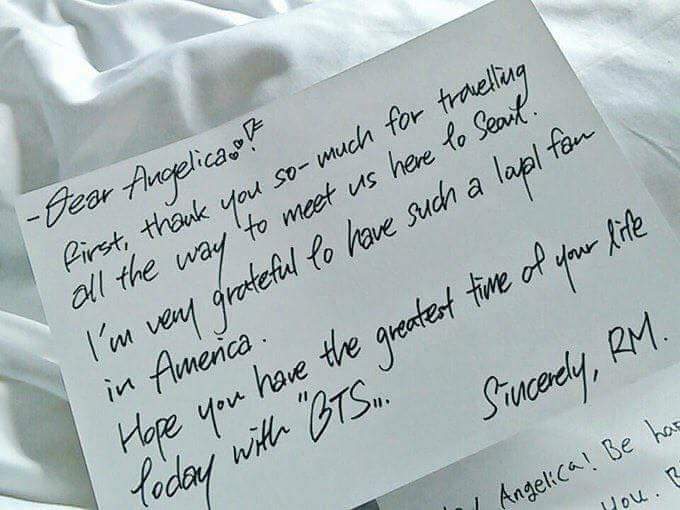 -Dear Angelica
First, thank you so-much for travelling
all the way to meet us here to Seoul.
I'm very grateful to have such a loyal fan
in America.
Hope you have the greatest time of your life
today with "BTS...
Sincerely, RM.
Angelica! Be
You.